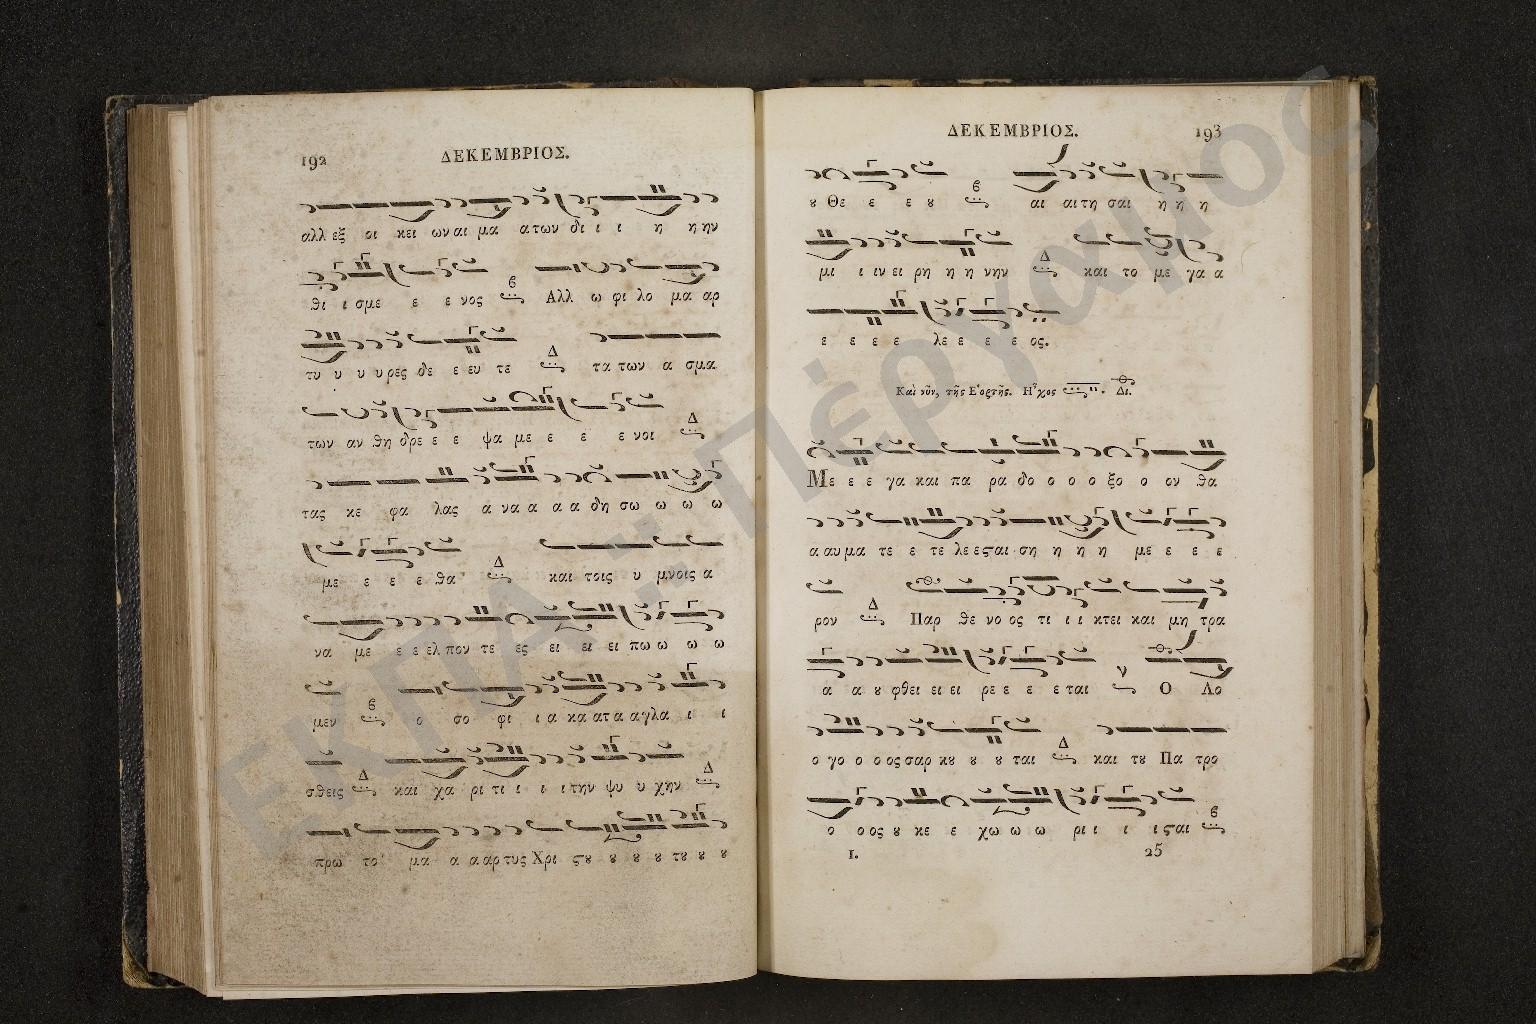 192
ΔΕΚΕΜΒΡΙΟΣ.
αλλ εξ οι κει ων αι μα α των δι ι ι η η ην
θι ι σμε ε ε νος Αλλ ω φι λο μα αρ
τυ υ υ υ ρες δε ε ευ τε τα των α σμα
των αν θη δρε ε ε ψα με ε ε ε νοι
τας κε φα λας α να α α α δη σω ω ω ω
με ε ε ε θα και τοις υ μνοις α
να με ε ε ελ πον τε ες ει ει ει πω ω ω ω
μεν ο σο φι ι α κα α τα α γλα ι ι
σθεις και χα ρι τι ι ι ι την ψυ υ χην
πρω το μα α α αρ τυς Χρι ϛȣ ȣ ȣ ȣ ȣ τȣ ȣ ȣ
ΔΕΚΕΜΒΡΙΟΣ.
193
ȣ Θε ε ε ȣ αι αι τη σαι η η η
μι ι ιν ει ρη η η νην και το με γα α
ε ε ε ε λε ε ε ε ος.
Καὶ νῦν, τῆς Ἑορτῆς. Ἦχος Δι.
Με ε ε γα και πα ρα δο ο ο ο ξο ο ον θα
α αυ μα τε ε τε λε εϛαι ση η η η με ε ε ε
ρον Παρ θε νο ος τι ι ι κτει και μη τρα
α α ȣ φθει ει ει ρε ε ε ε ται Ο Λο
ο γο ο ο ος σαρ κȣ ȣ ȣ ȣ ται και τȣ Πα τρο
ο ο ος ȣ κε ε χω ω ω ρι ι ι ιϛαι
I. 25
ΕΚΠΑ :: Πέργαμος